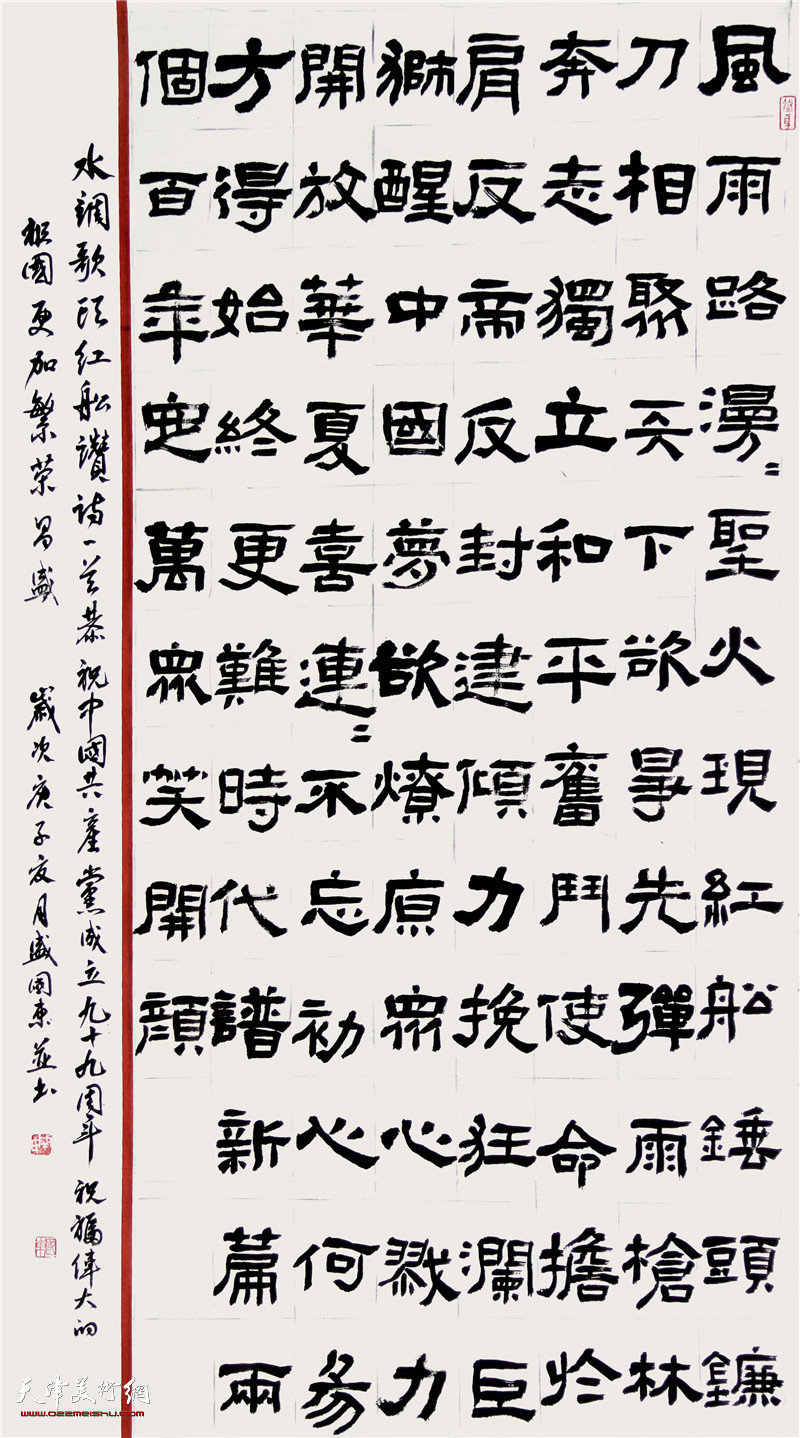 風雨路漫〻聖火現紅船錘頭鐮
刀相聚天下欲爭先彈雨槍林
奔志獨立和平奮鬥使命擔於
肩反帝反封建傾力挽狂瀾巨
獅醒中國夢欲燎原眾心戮力
開放華夏喜連〻不忘初心何易
方得始終更難時代譜新篇兩
個百年定萬眾笑開顏
水調歌頭紅船讚詩一首恭祝中國共產黨成立九十九周年 祝福偉大的
祖國更加繁榮昌盛 歲次庚子夏月盛國東並書
天津美術網
www.022meishu.com